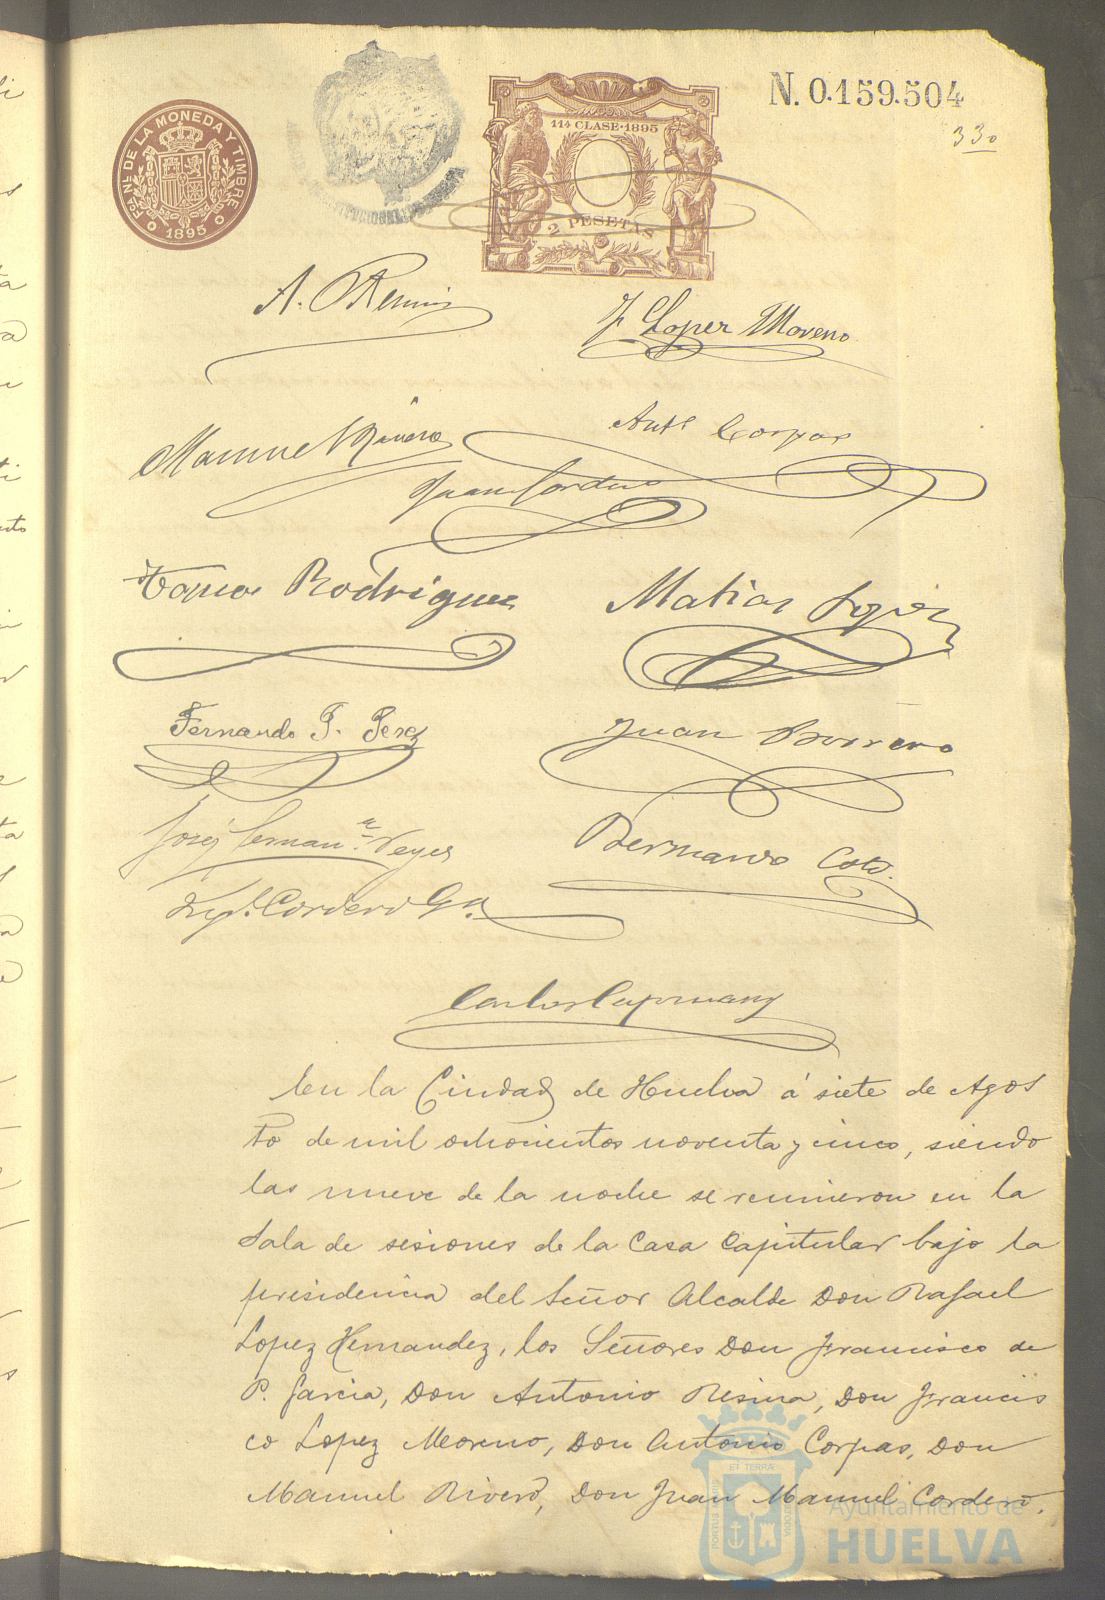 N. 0.159.504
330
FCA. NL. DE LA MONEDA Y TIMBRE
1895
11ª CLASE·1895
2 PESETAS
A. Resina
F. Lopez Moreno
Manuel Rivero
Antº Corpas
Juan Cordero
Tomas Rodriguez
Matias Lopez
Fernando P. Perez
Juan Borrero
José Hernanz Reyes
Bernardo Coto.
Cordero Ga.
Carlos Capmany
En la Ciudad de Huelva á siete de Agos
to de mil ochocientos noventa y cinco, siendo
las nueve de la noche se reunieron en la
Sala de sesiones de la Casa Capitular bajo la
presidencia del Señor Alcalde Don Rafael
Lopez Hernandez, los Señores Don Francisco de
P. Garcia, Don Antonio Resina, Don Francis
co Lopez Moreno, Don Antonio Corpas, Don
Manuel Rivero, Don Juan Manuel Cordero,
Ayuntamiento de
HUELVA